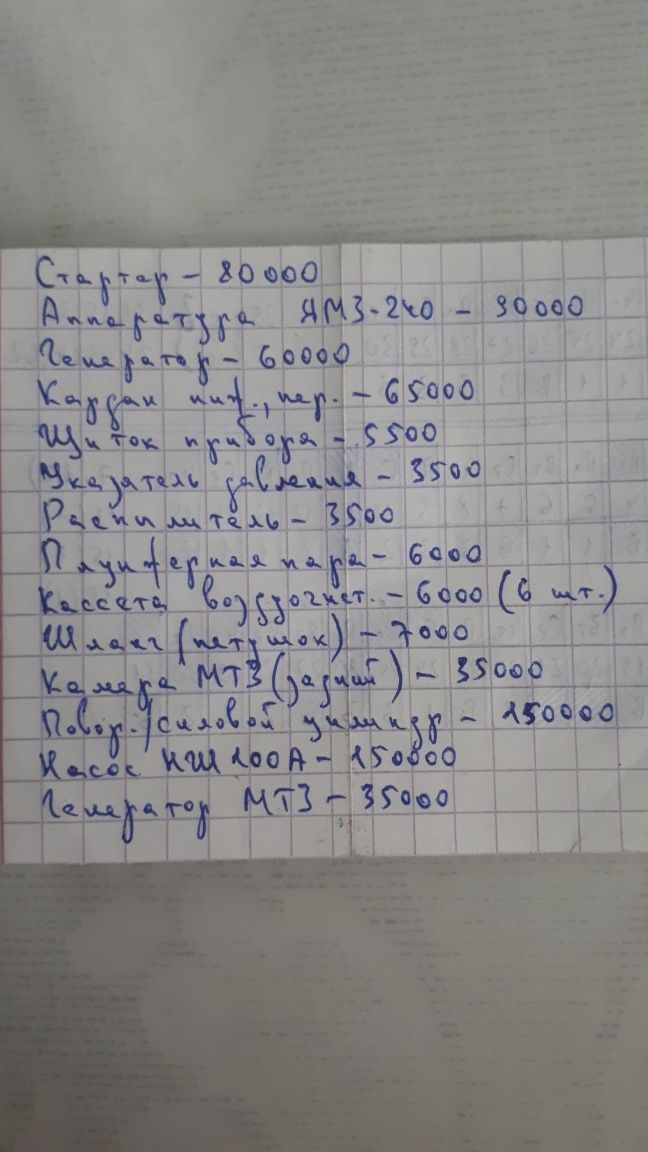 Стартер - 80000
Аппаратура ЯМЗ-240 - 90000
Генератор - 60000
Кардан ниж., пер. - 65000
Щиток прибора - 5500
Указатель давления - 3500
Распылитель - 3500
Плунжерная пара - 6000
Кассета воздухочист. - 6000 (6 шт.)
Шланг (петушок) - 7000
Камера МТЗ (задний) - 35000
Повор./силовой цилиндр - 150000
Насос НШ 100А - 150000
Генератор МТЗ - 35000